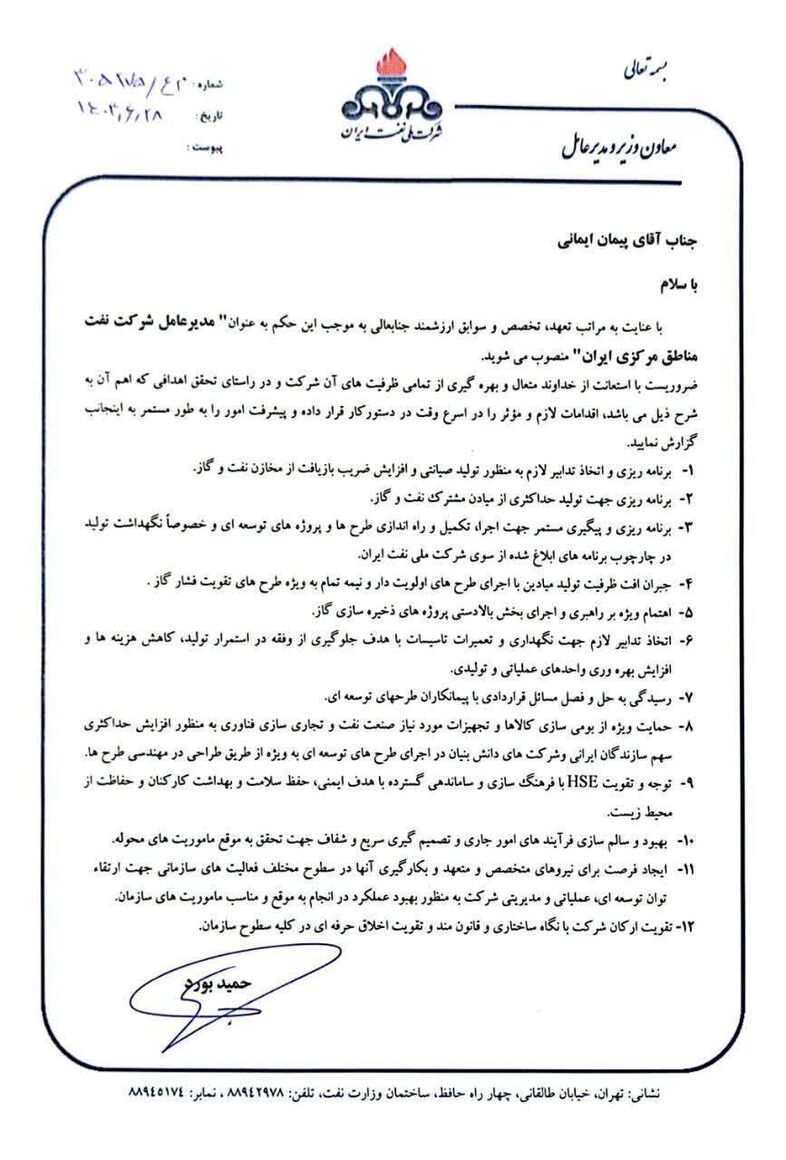 بسمه تعالی
شرکت ملی نفت ایران
معاون وزیر و مدیرعامل
شماره:
تاریخ: ۱۴۰۳,۶,۲۸
پیوست:
جناب آقای پیمان ایمانی
با سلام
با عنایت به مراتب تعهد، تخصص و سوابق ارزشمند جنابعالی به موجب این حکم به عنوان" مدیرعامل شرکت نفت
مناطق مرکزی ایران" منصوب می شوید.
ضروریست با استعانت از خداوند متعال و بهره گیری از تمامی ظرفیت های آن شرکت و در راستای تحقق اهدافی که اهم آن به
شرح ذیل می باشد، اقدامات لازم و مؤثر را در اسرع وقت در دستورکار قرار داده و پیشرفت امور را به طور مستمر به اینجانب
گزارش نمایید.
۱- برنامه ریزی و اتخاذ تدابیر لازم به منظور تولید صیانتی و افزایش ضریب بازیافت از مخازن نفت و گاز.
۲- برنامه ریزی جهت تولید حداکثری از میادن مشترک نفت و گاز.
۳- برنامه ریزی و پیگیری مستمر جهت اجرا، تکمیل و راه اندازی طرح ها و پروژه های توسعه ای و خصوصاً نگهداشت تولید
در چارچوب برنامه های ابلاغ شده از سوی شرکت ملی نفت ایران.
۴- جبران افت ظرفیت تولید میادین با اجرای طرح های اولویت دار و نیمه تمام به ویژه طرح های تقویت فشار گاز .
۵- اهتمام ویژه بر راهبری و اجرای بخش بالادستی پروژه های ذخیره سازی گاز.
۶- اتخاذ تدابیر لازم جهت نگهداری و تعمیرات تاسیسات با هدف جلوگیری از وقفه در استمرار تولید، کاهش هزینه ها و
افزایش بهره وری واحدهای عملیاتی و تولیدی.
۷- رسیدگی به حل و فصل مسائل قراردادی با پیمانکاران طرحهای توسعه ای.
۸- حمایت ویژه از بومی سازی کالاها و تجهیزات مورد نیاز صنعت نفت و تجاری سازی فناوری به منظور افزایش حداکثری
سهم سازندگان ایرانی وشرکت های دانش بنیان در اجرای طرح های توسعه ای به ویژه از طریق طراحی در مهندسی طرح ها.
۹- توجه و تقویت HSE با فرهنگ سازی و ساماندهی گسترده با هدف ایمنی، حفظ سلامت و بهداشت کارکنان و حفاظت از
محیط زیست.
۱۰- بهبود و سالم سازی فرآیند های امور جاری و تصمیم گیری سریع و شفاف جهت تحقق به موقع ماموریت های محوله.
۱۱- ایجاد فرصت برای نیروهای متخصص و متعهد و بکارگیری آنها در سطوح مختلف فعالیت های سازمانی جهت ارتقاء
توان توسعه ای، عملیاتی و مدیریتی شرکت به منظور بهبود عملکرد در انجام به موقع و مناسب ماموریت های سازمان.
۱۲- تقویت ارکان شرکت با نگاه ساختاری و قانون مند و تقویت اخلاق حرفه ای در کلیه سطوح سازمان.
حمید بورد
نشانی: تهران، خیابان طالقانی، چهار راه حافظ، ساختمان وزارت نفت، تلفن: ۸۸۹۴۲۹۷۸ ، نمابر: ۸۸۹۴۵۱۷۴